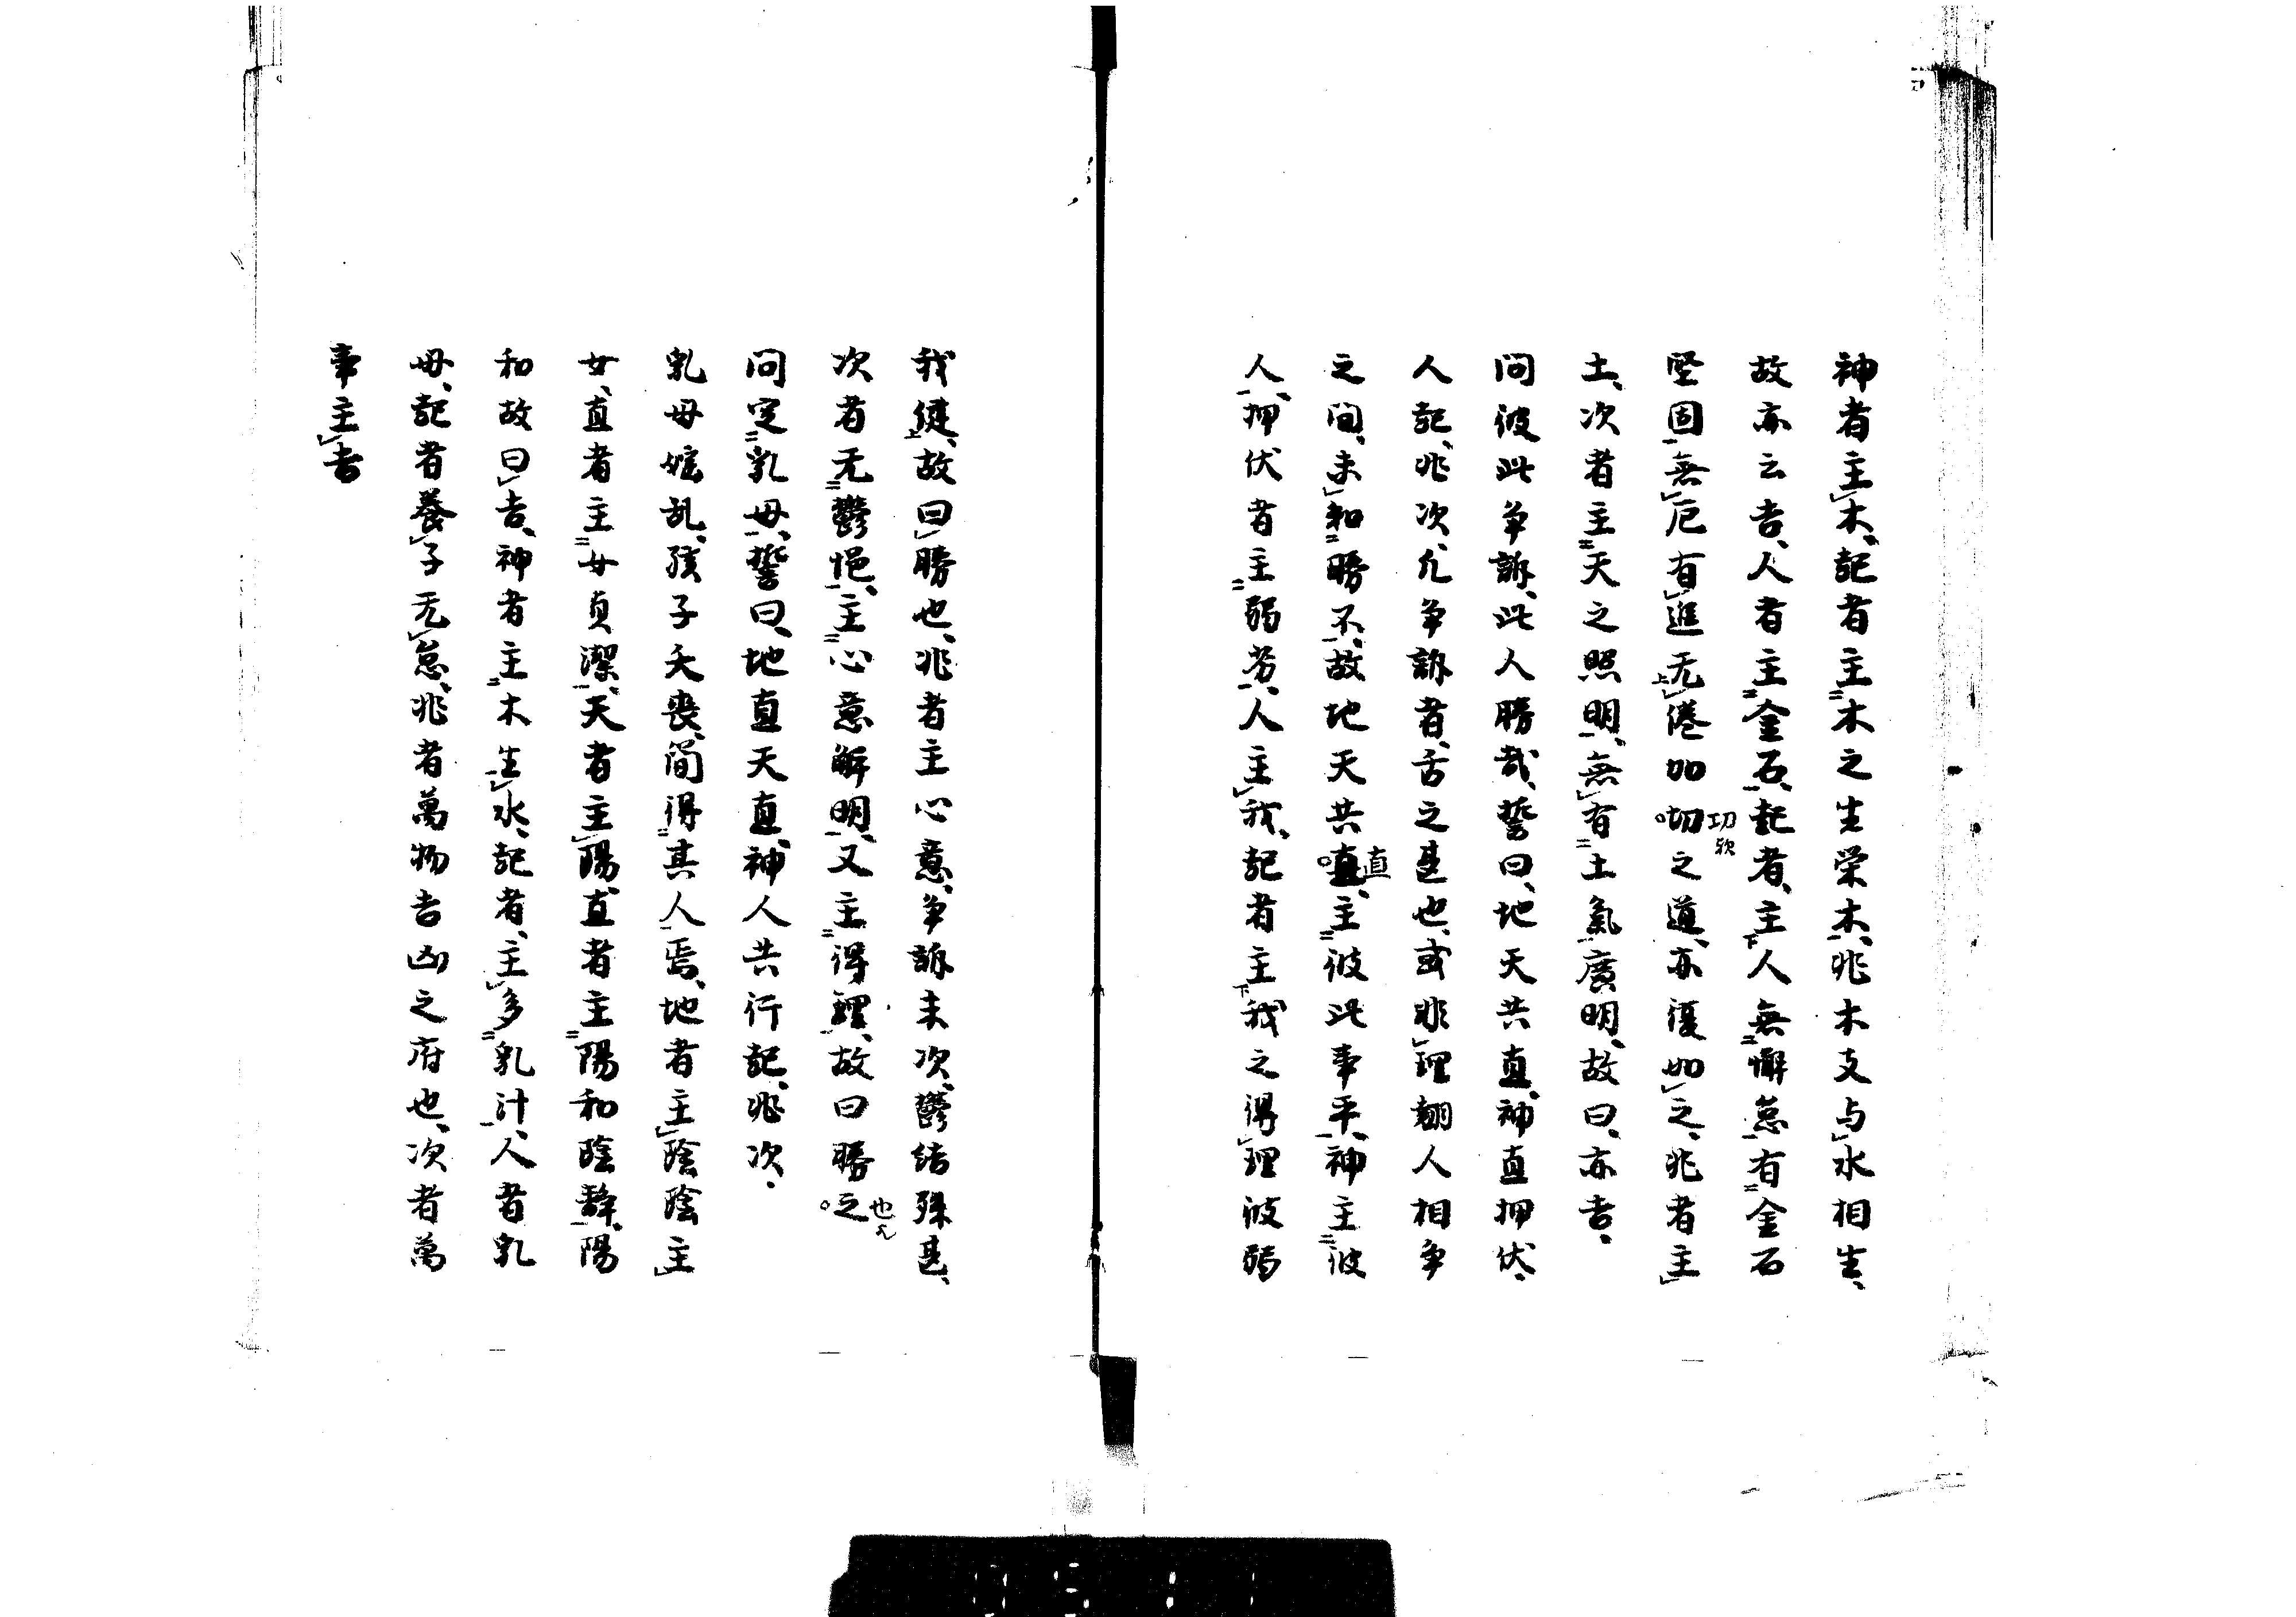 神者主木、記者主木之生栄木、兆木支与水相生、
故亦云吉、人者主金石、起者、主人無懈怠有金石
堅固無厄有進无倦如切之道、亦復如之、兆者主
功歟
土、次者主天之照明、無有土氣廣明、故曰、亦吉、
問彼此争訴、此人勝哉、誓曰、地天共直、神直押伏、
人記、兆次、凢争訴者、舌之甚也、或非理翻人相争
之間、未知勝不、故地天共直、主彼此事平、神主彼
直
人、押伏者主弱劣、人主我、記者主我之得理彼弱
我健、故曰勝也、兆者主心意、争訴未次、鬱結殊甚、
次者无鬱悒、主心意解明、又主得理、故曰勝之
也
問定乳母、誓曰、地直天直、神人共行記、兆次、
乳母婬乱、孩子夭喪、簡得其人焉、地者主陰陰主
女、直者主女貞潔、天者主陽、直者主陽和陰静、陽
和故曰吉、神者主木生水、記者、主多乳汁、人者乳
母、記者養子无怠、兆者萬物吉凶之府也、次者萬
事主吉